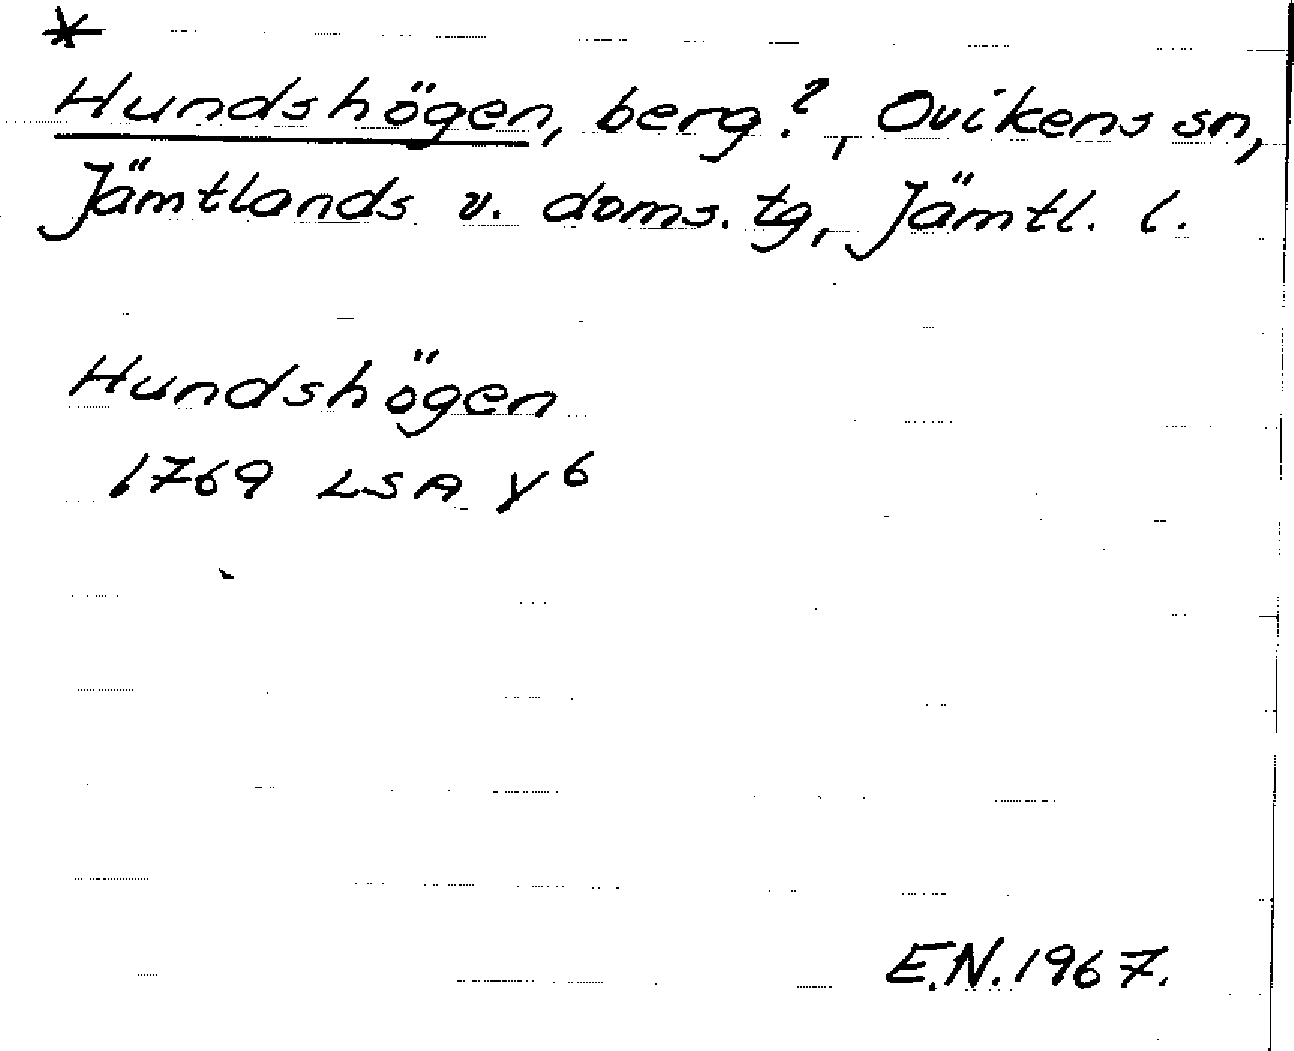 *
Hundshögen, berg?, Ovikens sn,
Jämtlands v. doms. tg, Jämtl. l.
Hundshögen
1769 LSA γ6
E.N. 1967.